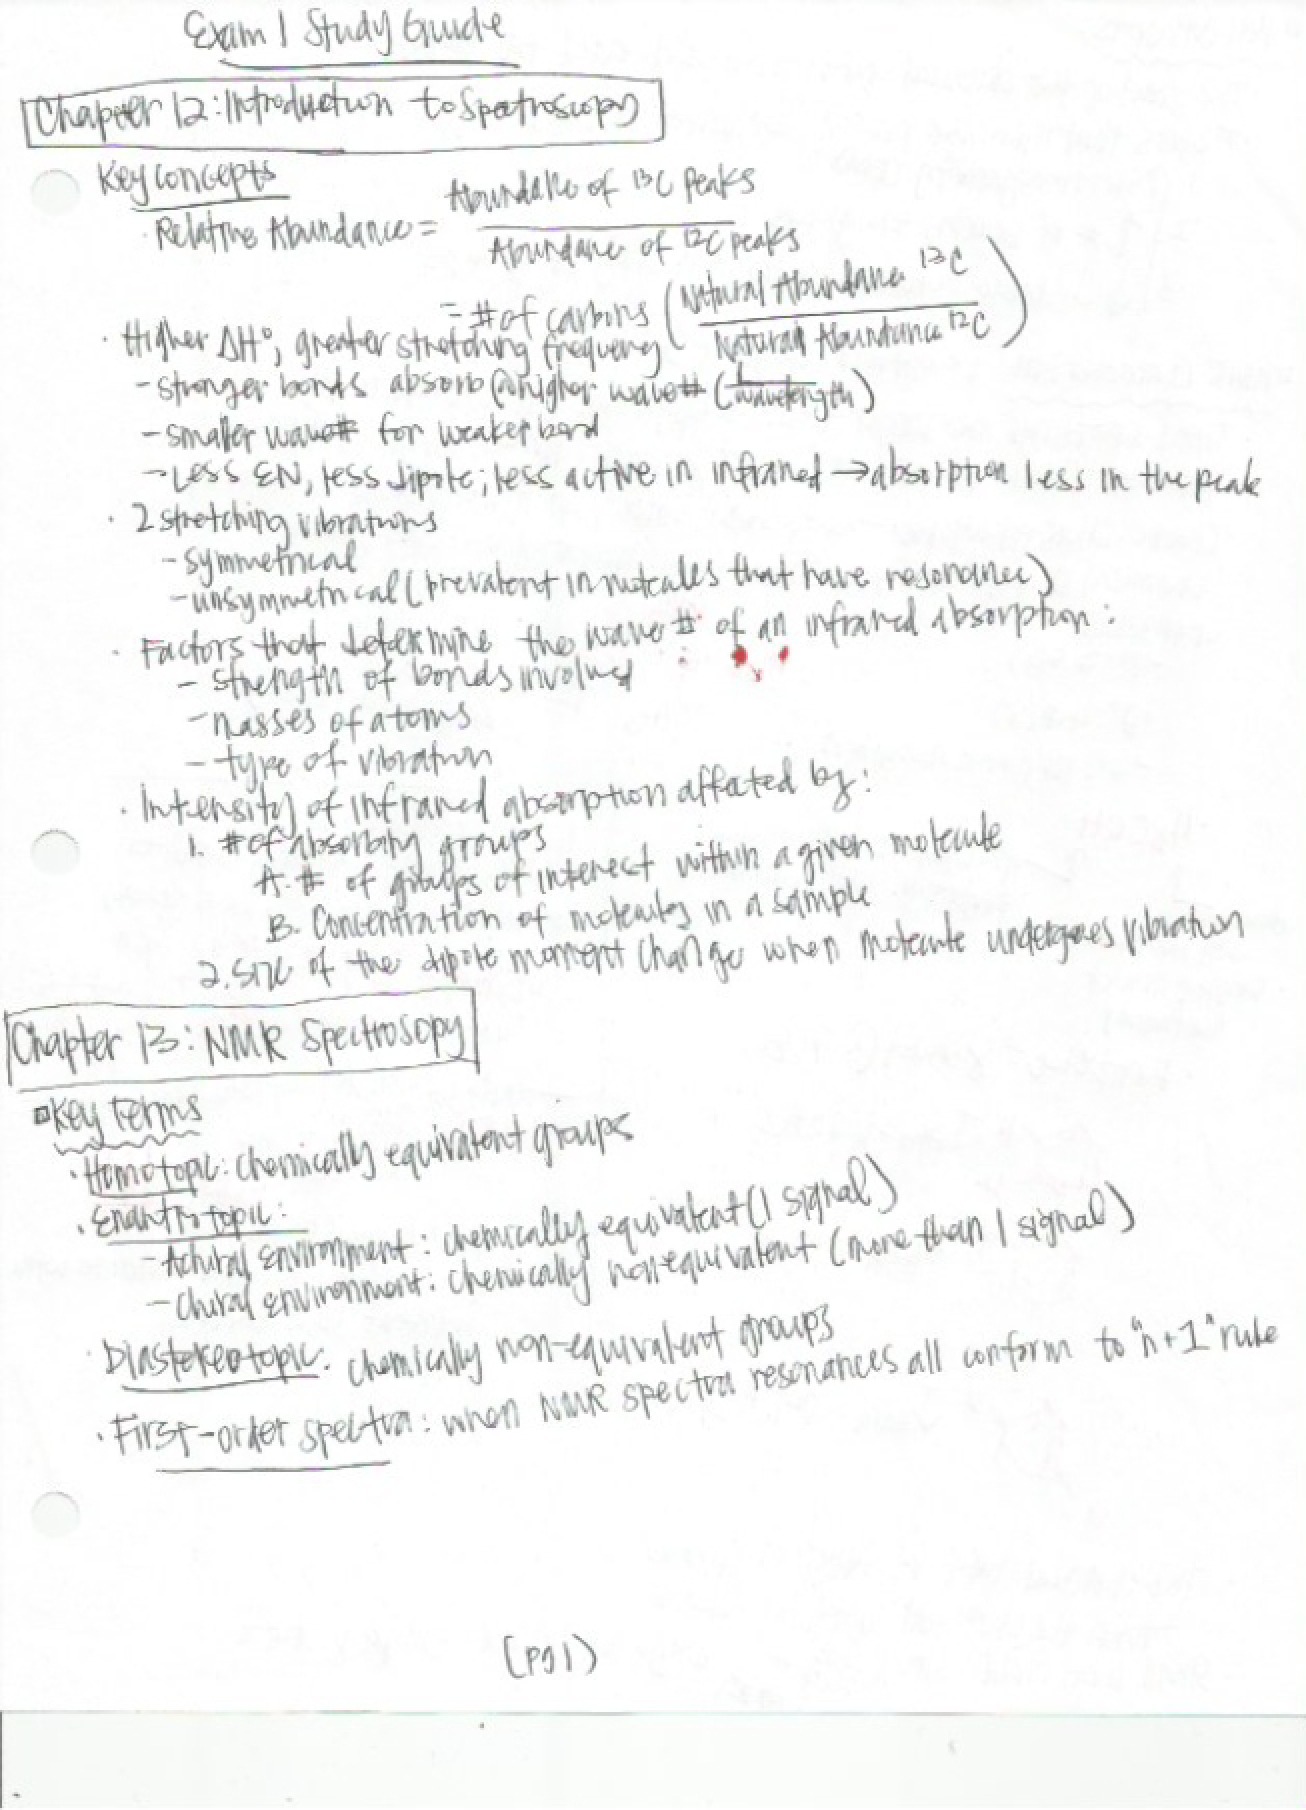 Exam 1 Study Guide
Chapter 12: Introduction to Spectroscopy
Key concepts
Relative Abundance = Abundance of 13C Peaks / Abundance of 12C peaks
= # of carbons (Natural Abundance 13C / Natural Abundance 12C)
· Higher ΔH°, greater stretching frequency
- stronger bonds absorb @ higher wave# (1/wavelength)
- smaller wave# for weaker bond
- Less EN, less dipole; less active in infrared → absorption less in the peak
· 2 stretching vibrations
- symmetrical
- unsymmetrical (prevalent in molecules that have resonance)
· Factors that determine the wave # of an infrared absorption:
- strength of bonds involved
- masses of atoms
- type of vibration
· Intensity of infrared absorption affected by:
1. # of absorbing groups
A. # of groups of interest within a given molecule
B. Concentration of molecules in a sample
2. Size of the dipole moment change when molecule undergoes vibration
Chapter 13: NMR Spectrosopy
Key terms
· Homotopic: chemically equivalent groups
· Enantiotopic:
- Achiral environment: chemically equivalent (1 signal)
- Chiral environment: chemically nonequivalent (more than 1 signal)
· Diastereotopic: chemically non-equivalent groups
· First-order spectra: when NMR spectra resonances all conform to "n+1" rule
(PG1)